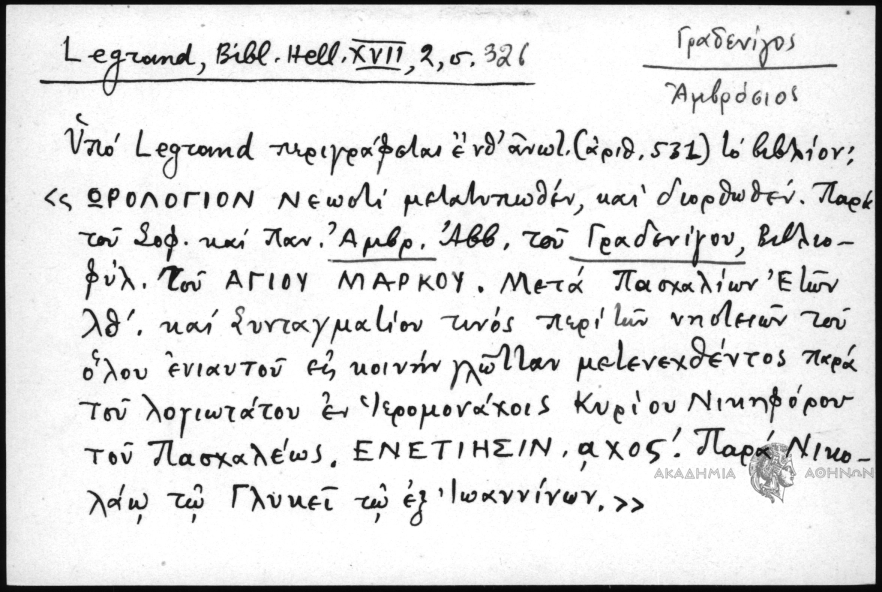 Legrand, Bibl. Hell. XVII, 2, σ. 326
Γραδενίγος
Ἀμβρόσιος
Ὑπό Legrand περιγράφεται ἐνθ' ἀνωτ. (ἀριθ. 531) τό βιβλίον:
<< ΩΡΟΛΟΓΙΟΝ Νεωστί μετατυπωθέν, καί διορθωθέν. Παρά
τοῦ Σοφ. καί Παν. Ἀμβρ. Ἀββ. τοῦ Γραδενίγου, Βιβλιο-
φύλ. τοῦ ΑΓΙΟΥ ΜΑΡΚΟΥ. Μετά Πασχαλίων Ἐτῶν
λθ'. καί Συνταγματίου τινός περί τῶν νηστειῶν τοῦ
ὅλου ἐνιαυτοῦ εἰς κοινήν γλῶτταν μετενεχθέντος παρά
τοῦ λογιωτάτου ἐν Ἱερομονάχοις Κυρίου Νικηφόρου
τοῦ Πασχαλέως. ΕΝΕΤΙΗΣΙΝ. ͵αχος'. Παρά Νικο-
λάῳ τῷ Γλυκεῖ τῷ ἐξ Ἰωαννίνων. >>
ΑΚΑΔΗΜΙΑ ΑΘΗΝΩΝ